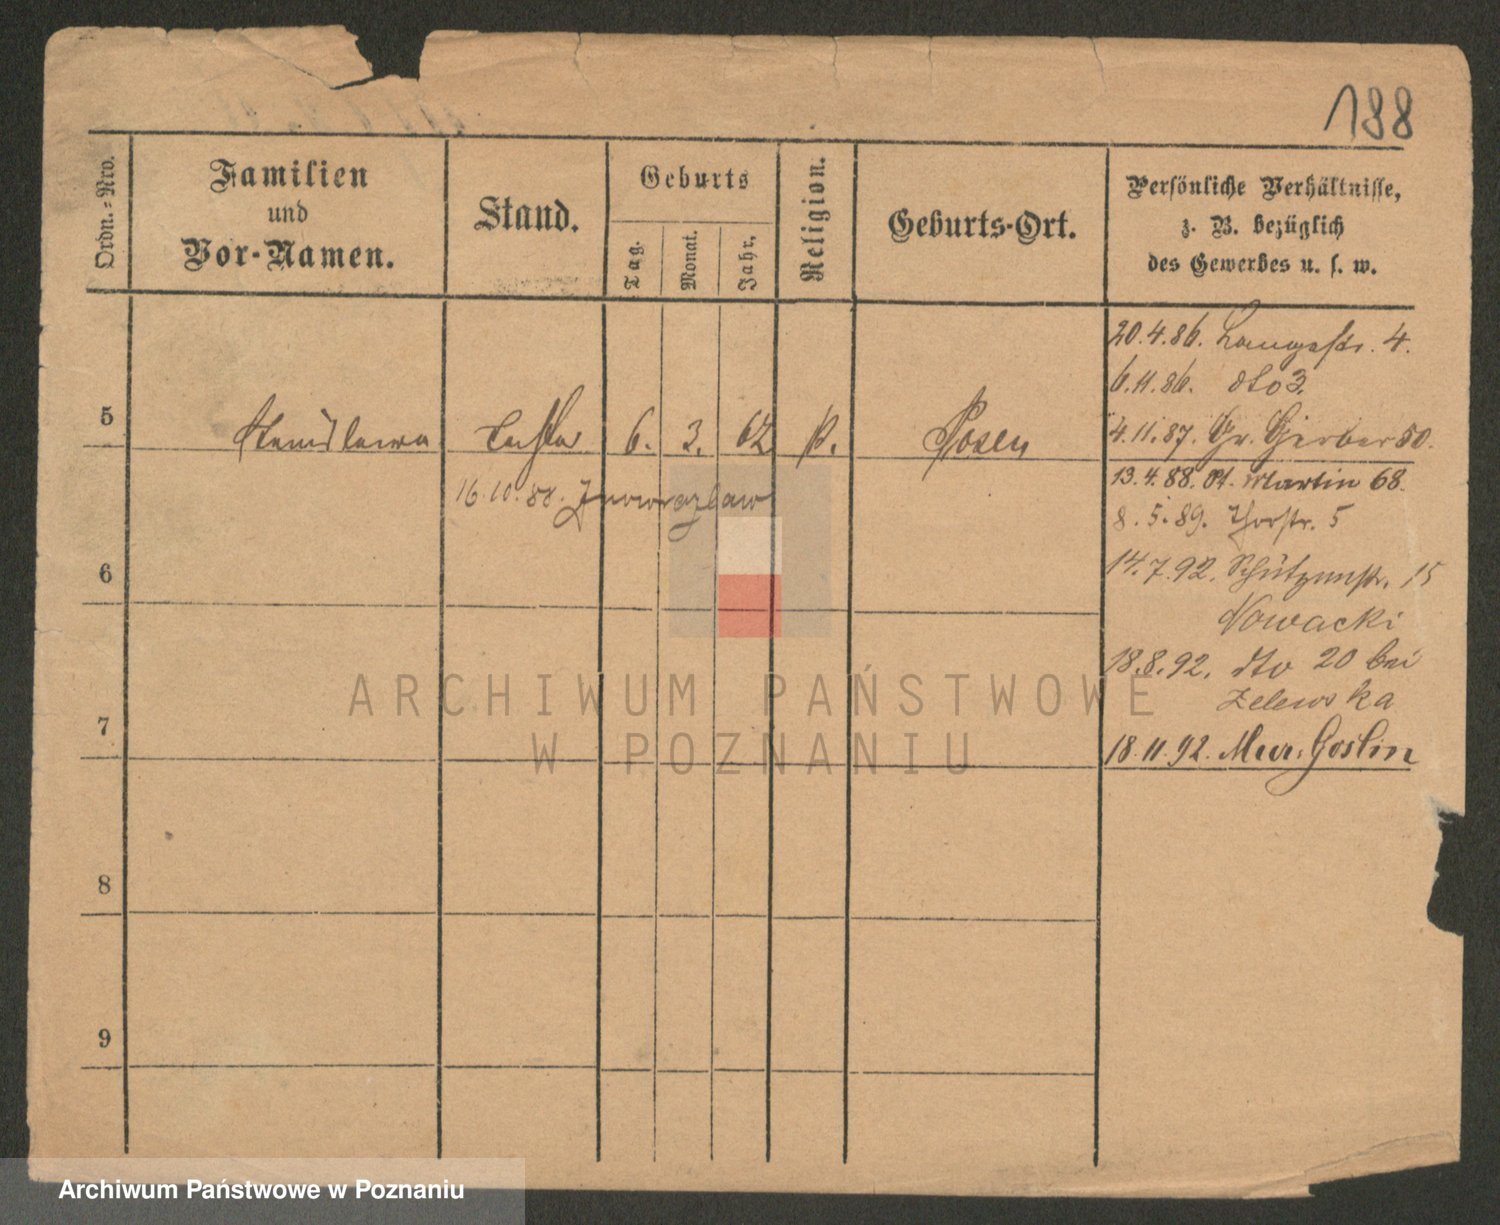 188
Ordn.-Nro.
Familien
und
Vor-Namen.
Stand.
Geburts
Tag.
Monat.
Jahr,
Religion.
Geburts-Ort.
Persönliche Verhältnisse,
z. B. bezüglich
des Gewerbes u. s. w.
20.4.86. Langestr. 4.
6.11.86. dto 3.
4.11.87. Gr. Gerber 50.
5 Stanislawa 6. 3. 62 k. Posen
13.4.88. St. Martin 68.
16.10.88. Inowrazlaw
8.5.89. Thorstr. 5
14.7.92. Schützenstr. 15
Nowacki
6
18.8.92. dto 20 bei
Zelewska
7
18.11.92. Mur. Goslin
8
9
ARCHIWUM PAŃSTWOWE
W POZNANIU
Archiwum Państwowe w Poznaniu